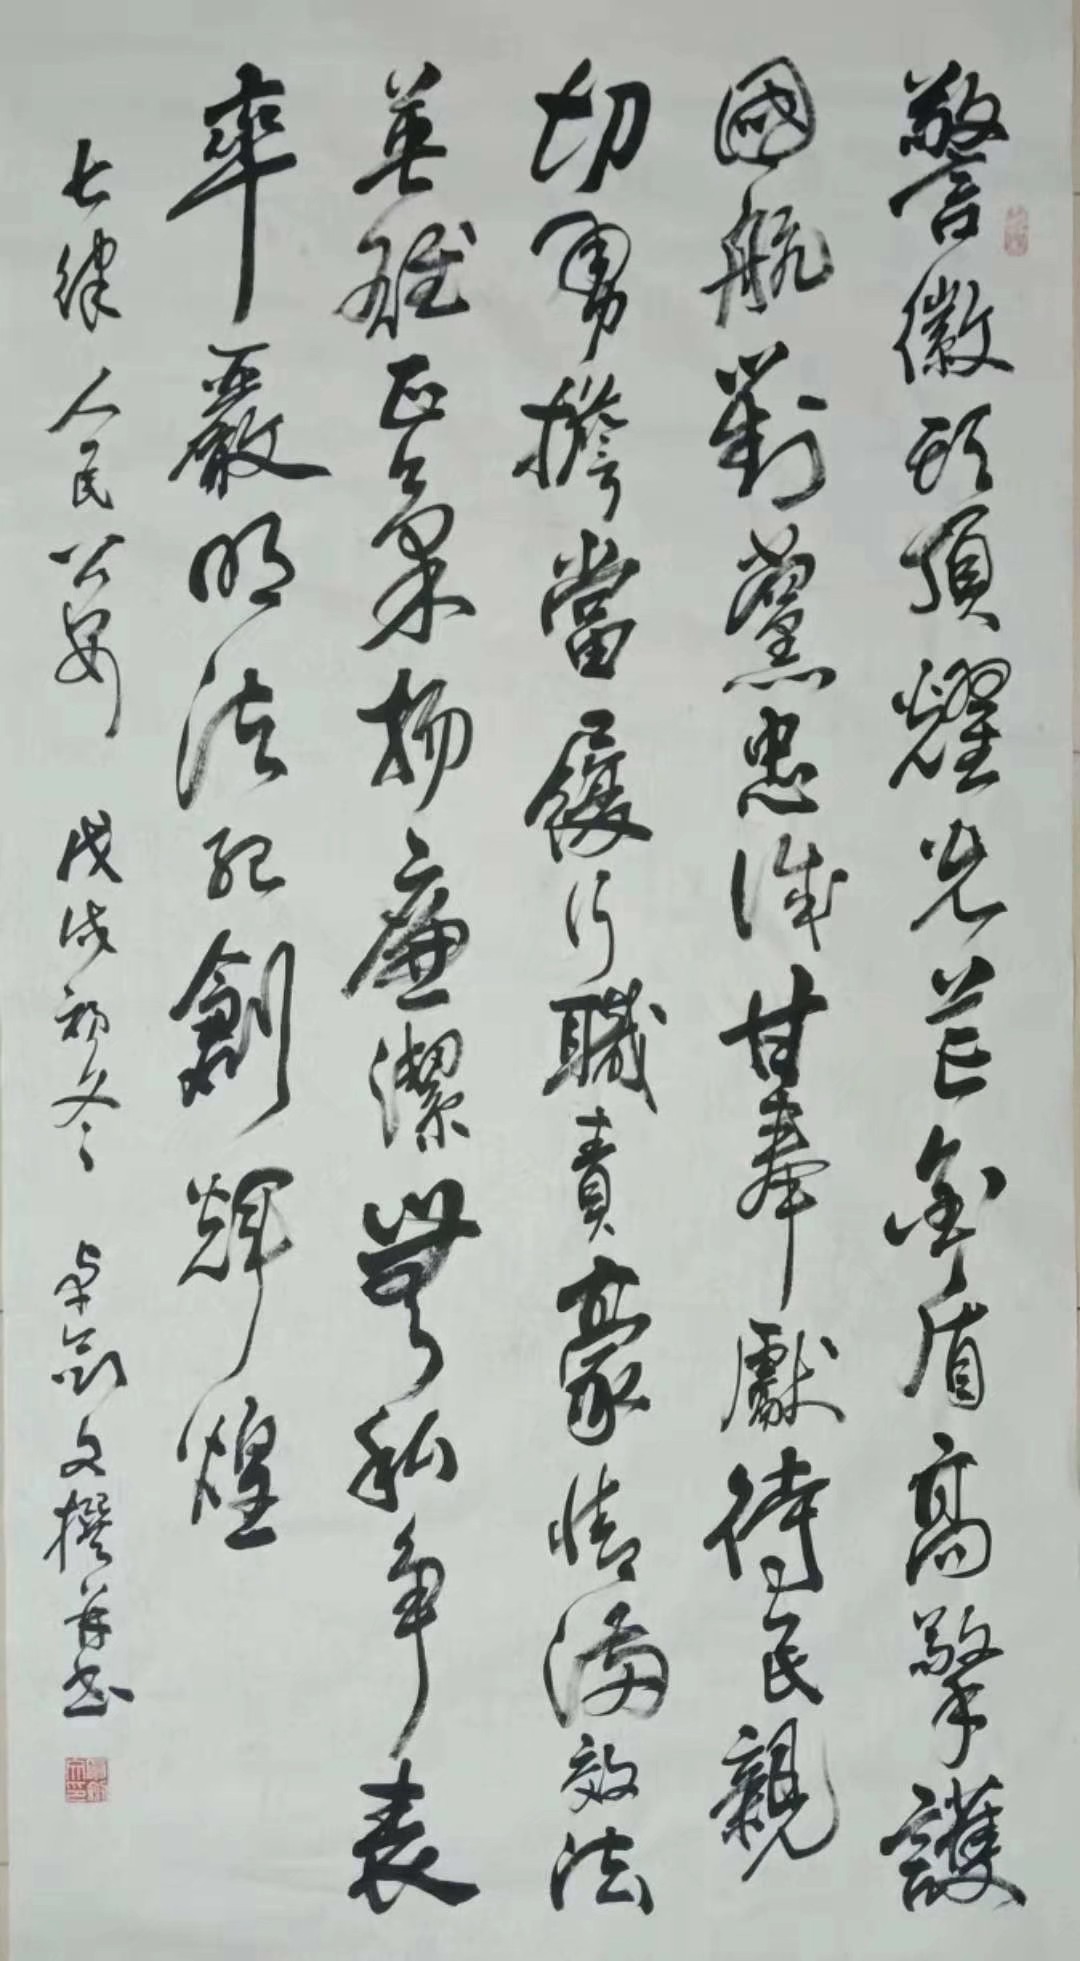 警徽頭頂耀光芒金盾高擎護
國航對黨忠誠甘奉獻待民親
切勇擔當履行職責豪情滿效法
英雄正氣揚廉潔無私争表
率嚴明法紀創輝煌
七律人民公安 戊戌初冬 卓剑文撰并书